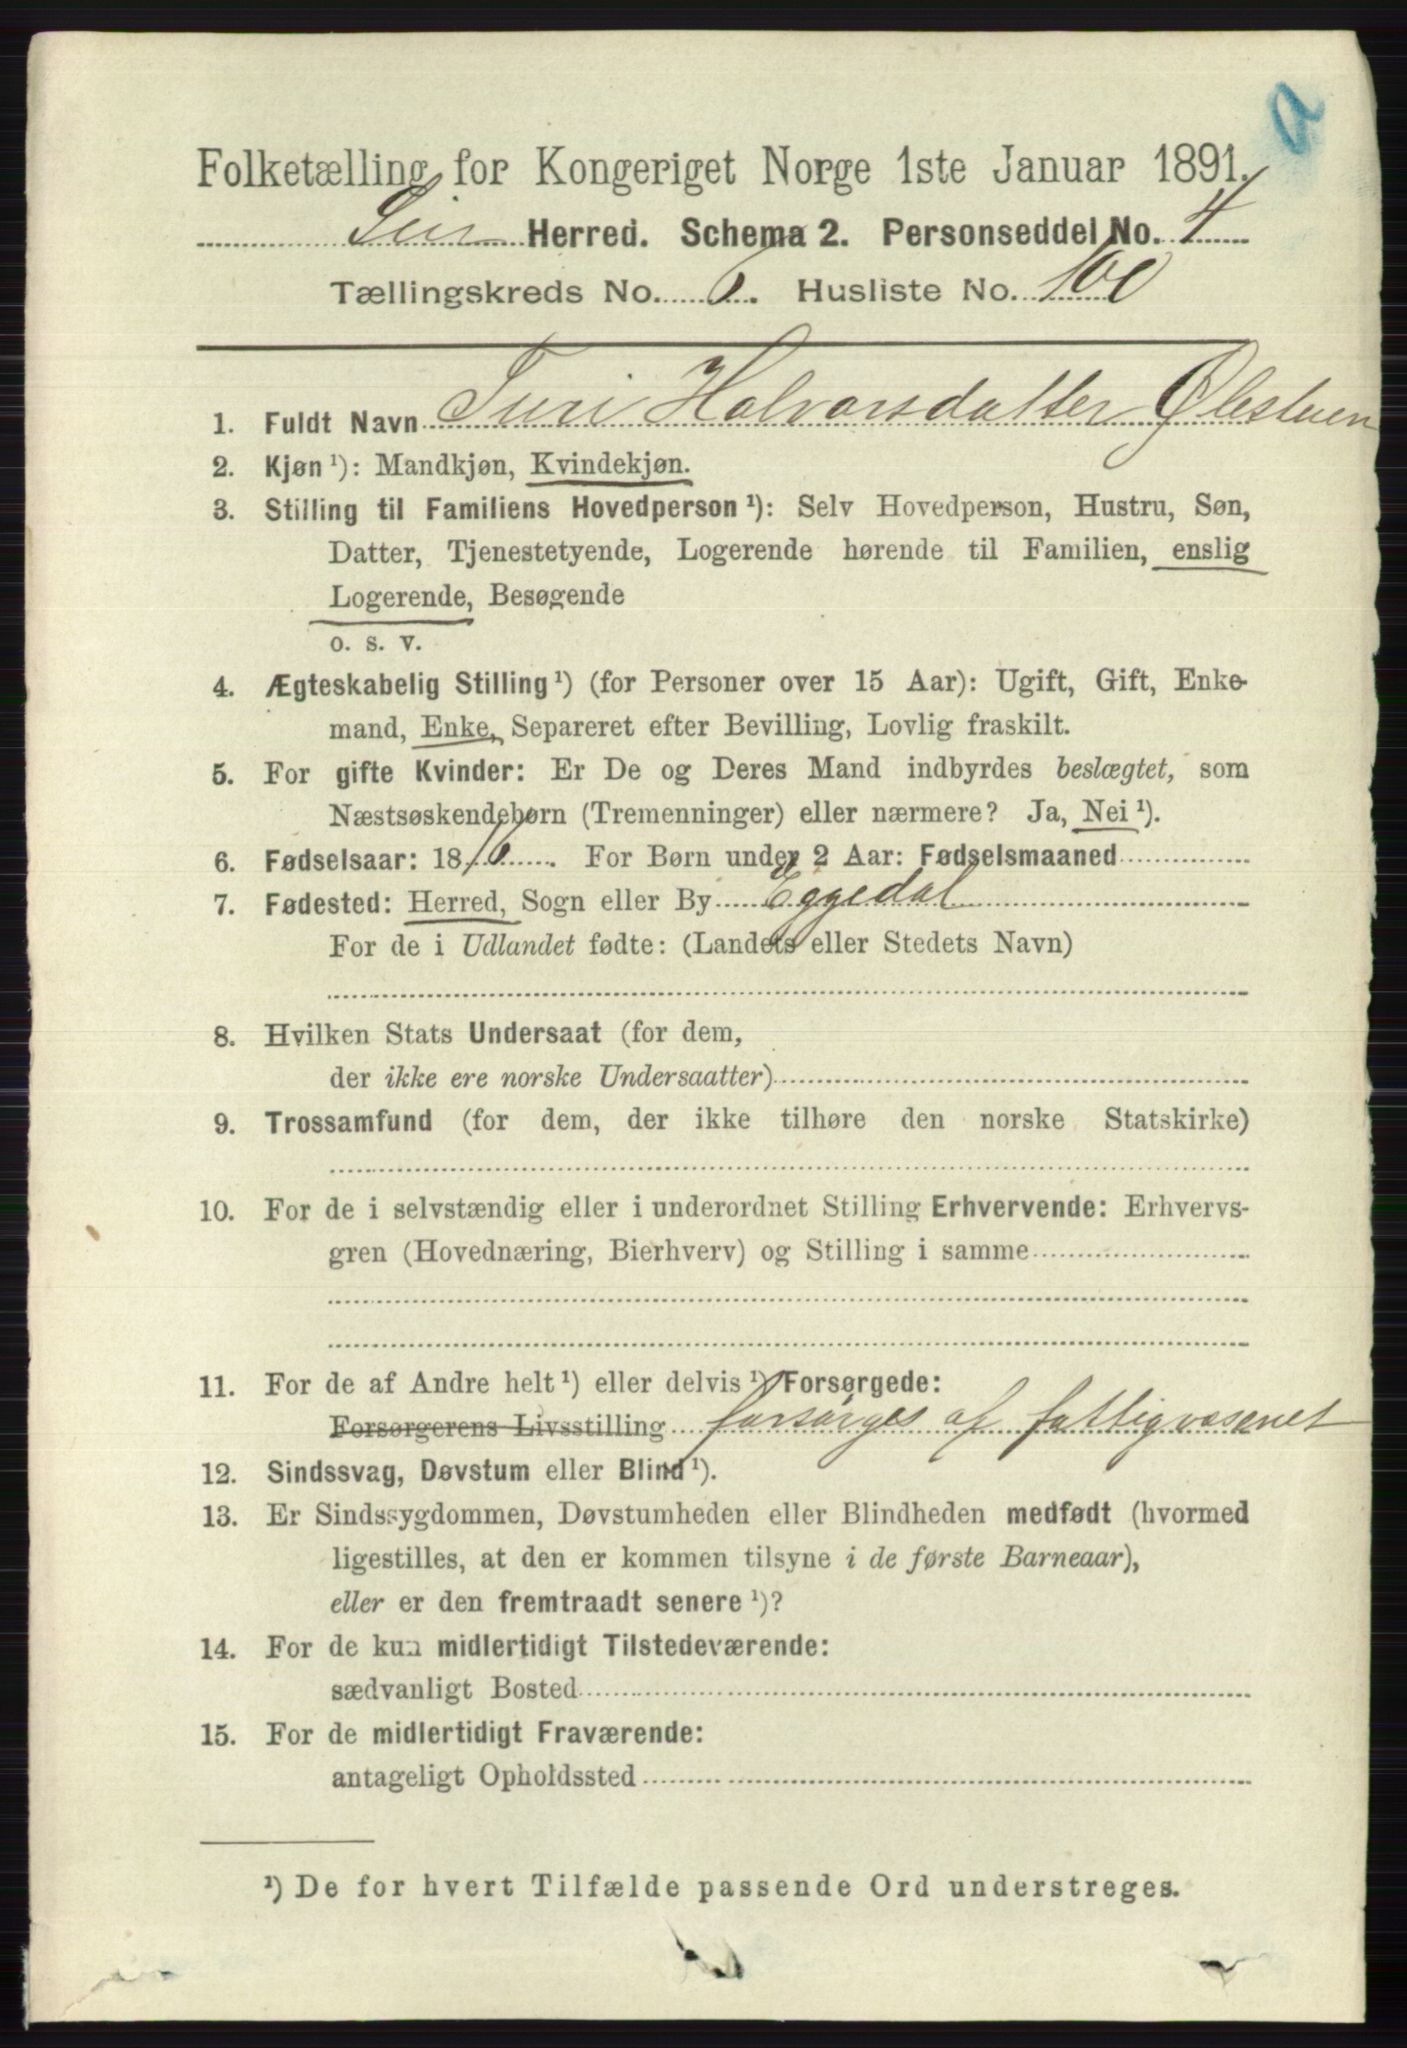 a
Folketælling for Kongeriget Norge 1ste Januar 1891.
Lier Herred. Schema 2. Personseddel No. 4
Tællingskreds No. 6. Husliste No. 100
1. Fuldt Navn Turi Halvorsdatter Ølestuen
2. Kjøn ¹): Mandkjøn, Kvindekjøn.
3. Stilling til Familiens Hovedperson ¹): Selv Hovedperson, Hustru, Søn,
Datter, Tjenestetyende, Logerende hørende til Familien, enslig
Logerende, Besøgende
o. s. v.
4. Ægteskabelig Stilling ¹) (for Personer over 15 Aar): Ugift, Gift, Enke-
mand, Enke, Separeret efter Bevilling, Lovlig fraskilt.
5. For gifte Kvinder: Er De og Deres Mand indbyrdes beslægtet, som
Næstsøskendebørn (Tremenninger) eller nærmere? Ja, Nei ¹).
6. Fødselsaar: 1816. For Børn under 2 Aar: Fødselsmaaned
7. Fødested: Herred, Sogn eller By Eggedal
For de i Udlandet fødte: (Landets eller Stedets Navn)
8. Hvilken Stats Undersaat (for dem,
der ikke ere norske Undersaatter)
9. Trossamfund (for dem, der ikke tilhøre den norske Statskirke)
10. For de i selvstændig eller i underordnet Stilling Erhvervende: Erhvervs-
gren (Hovednæring, Bierhverv) og Stilling i samme
11. For de af Andre helt ¹) eller delvis ¹) Forsørgede:
Forsørgerens Livsstilling forsørges af fattigvæsenet
12. Sindssvag, Døvstum eller Blind ¹).
13. Er Sindssygdommen, Døvstumheden eller Blindheden medfødt (hvormed
ligestilles, at den er kommen tilsyne i de første Barneaar),
eller er den fremtraadt senere ¹)?
14. For de kun midlertidigt Tilstedeværende:
sædvanligt Bosted
15. For de midlertidigt Fraværende:
antageligt Opholdssted
¹) De for hvert Tilfælde passende Ord understreges.